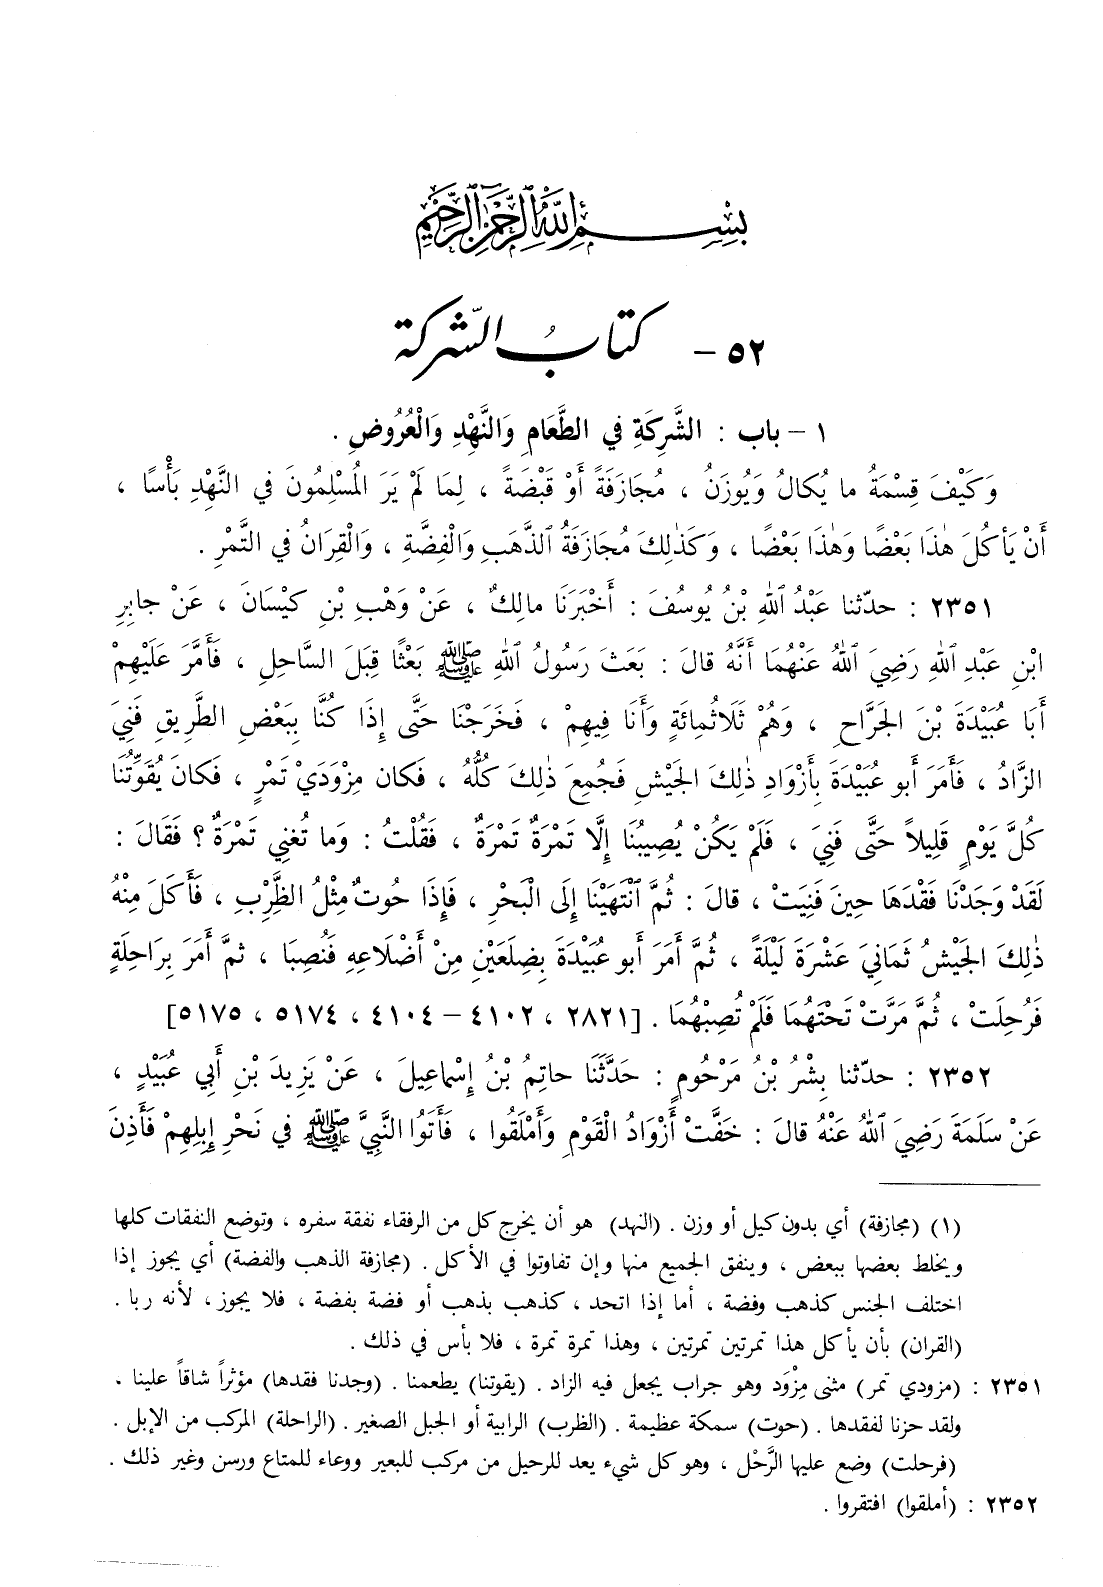 بِسْمِ اللهِ الرَّحْمٰنِ الرَّحِيمِ
٥٢ – كتابُ الشّركة
١ – باب : الشَّرِكَةِ في الطَّعَامِ وَالنَّهْدِ وَالْعُرُوضِ .
وَكَيْفَ قِسْمَةُ ما يُكالُ وَيُوزَنُ ، مُجَازَفَةً أَوْ قَبْضَةً ، لِمَا لَمْ يَرَ المُسْلِمُونَ في النَّهْدِ بَأْسًا ،
أَنْ يَأكُلَ هٰذَا بَعْضًا وَهٰذَا بَعْضًا ، وَكَذٰلِكَ مُجَازَفَةُ ٱلذَّهَبِ وَالْفِضَّةِ ، وَالْقِرَانُ في التَّمْرِ .
٢٣٥١ : حدّثنا عَبْدُ ٱللهِ بْنُ يُوسُفَ : أَخْبَرَنَا مالِكٌ ، عَنْ وَهْبِ بْنِ كَيْسَانَ ، عَنْ جابِرِ
ابْنِ عَبْدِ ٱللهِ رَضِيَ ٱللهُ عَنْهُمَا أَنَّهُ قالَ : بَعَثَ رَسُولُ ٱللهِ ﷺ بَعْثًا قِبَلَ السَّاحِلِ ، فَأَمَّرَ عَلَيْهِمْ
أَبَا عُبَيْدَةَ بْنَ الجَرَّاحِ ، وَهُمْ ثَلَاثُمِائَةٍ وَأَنَا فِيهِمْ ، فَخَرَجْنَا حَتَّى إِذَا كُنَّا بِبَعْضِ الطَّرِيقِ فَنِيَ
الزَّادُ ، فَأَمَرَ أَبو عُبَيْدَةَ بِأَزْوَادِ ذٰلِكَ الجَيْشِ فَجُمِعَ ذٰلِكَ كُلُّهُ ، فَكان مِزْوَدَيْ تَمْرٍ ، فَكانَ يُقَوِّتُنَا
كُلَّ يَوْمٍ قَلِيلاً حَتَّى فَنِيَ ، فَلَمْ يَكُنْ يُصِيبُنَا إِلَّا تَمْرَةٌ تَمْرَةٌ ، فَقُلْتُ : وَما تُغنِي تَمْرَةٌ ؟ فَقَالَ :
لَقَدْ وَجَدْنَا فَقْدَهَا حِينَ فَنِيَتْ ، قالَ : ثُمَّ ٱنْتَهَيْنَا إِلَى الْبَحْرِ ، فَإِذَا حُوتٌ مِثْلُ الظَّرِبِ ، فَأَكَلَ مِنْهُ
ذٰلِكَ الجَيْشُ ثَمَانِيَ عَشْرَةَ لَيْلَةً ، ثُمَّ أَمَرَ أَبو عُبَيْدَةَ بِضِلَعَيْنِ مِنْ أَضْلَاعِهِ فَنُصِبَا ، ثمَّ أَمَرَ بِرَاحِلَةٍ
فَرُحِلَتْ ، ثُمَّ مَرَّتْ تَحْتَهُمَا فَلَمْ تُصِبْهُمَا . [٢٨٢١ ، ٤١٠٢ – ٤١٠٤ ، ٥١٧٤ ، ٥١٧٥]
٢٣٥٢ : حدّثنا بِشْرُ بْنُ مَرْحُومٍ : حَدَّثَنَا حاتِمُ بْنُ إِسْماعِيلَ ، عَنْ يَزِيدَ بْنِ أَبي عُبَيْدٍ ،
عَنْ سَلَمَةَ رَضِيَ ٱللهُ عَنْهُ قالَ : خَفَّتْ أَزْوَادُ الْقَوْمِ وَأَمْلَقُوا ، فَأَتَوُا النَّبِيَّ ﷺ في نَحْرِ إِبِلِهِمْ فَأَذِنَ
(١) (مجازفة) أي بدون كيل أو وزن . (النهد) هو أن يخرج كل من الرفقاء نفقة سفره ، وتوضع النفقات كلها
ويخلط بعضها ببعض ، وينفق الجميع منها وإن تفاوتوا في الأكل . (مجازفة الذهب والفضة) أي يجوز إذا
اختلف الجنس كذهب وفضة ، أما إذا اتحد ، كذهب بذهب أو فضة بفضة ، فلا يجوز ، لأنه ربا .
(القران) بأن يأكل هذا تمرتين تمرتين ، وهذا تمرة تمرة ، فلا بأس في ذلك .
٢٣٥١ : (مزودي تمر) مثنى مِزْوَد وهو جراب يجعل فيه الزاد . (يقوتنا) يطعمنا . (وجدنا فقدها) مؤثراً شاقاً علينا .
ولقد حزنا لفقدها . (حوت) سمكة عظيمة . (الظرب) الرابية أو الجبل الصغير . (الراحلة) المركب من الإبل .
(فرحلت) وضع عليها الرَّحْل ، وهو كل شيء يعد للرحيل من مركب للبعير ووعاء للمتاع ورسن وغير ذلك .
٢٣٥٢ : (أملقوا) افتقروا .